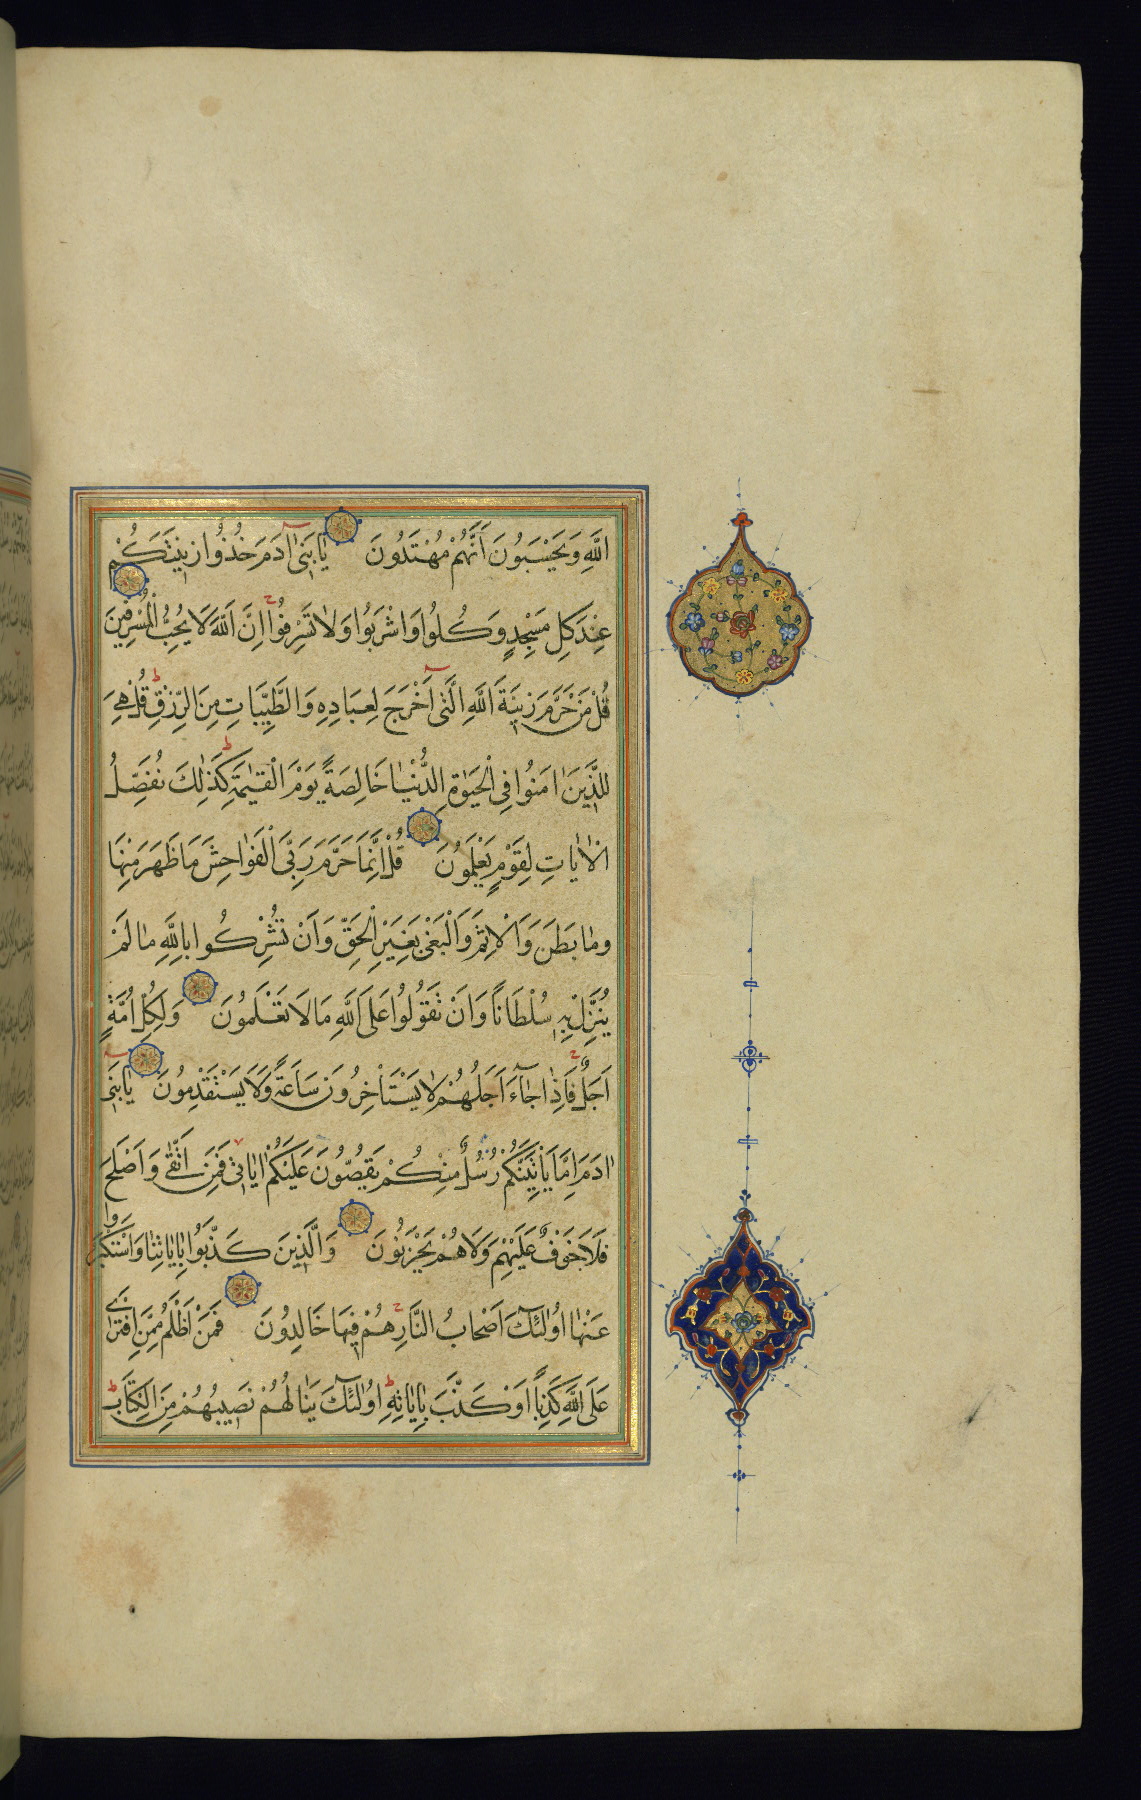 اللّٰهِ وَيَحْسَبُونَ اَنَّهُمْ مُهْتَدُونَ يَا بَنِى اٰدَمَ خُذُوا زِينَتَكُمْ
عِنْدَ كُلِّ مَسْجِدٍ وَكُلُوا وَاشْرَبُوا وَلَا تُسْرِفُوا اِنَّ اللّٰهَ لَا يُحِبُّ الْمُسْرِفِينَ
قُلْ مَنْ حَرَّمَ زِينَةَ اللّٰهِ الَّتِى اَخْرَجَ لِعِبَادِهِ وَالطَّيِّبَاتِ مِنَ الرِّزْقِ قُلْ هِىَ
لِلَّذِينَ اٰمَنُوا فِى الْحَيٰوةِ الدُّنْيَا خَالِصَةً يَوْمَ الْقِيٰمَةِ كَذٰلِكَ نُفَصِّلُ
الْاٰيَاتِ لِقَوْمٍ يَعْلَمُونَ قُلْ اِنَّمَا حَرَّمَ رَبِّىَ الْفَوَاحِشَ مَا ظَهَرَ مِنْهَا
وَمَا بَطَنَ وَالْاِثْمَ وَالْبَغْىَ بِغَيْرِ الْحَقِّ وَاَنْ تُشْرِكُوا بِاللّٰهِ مَا لَمْ
يُنَزِّلْ بِهِ سُلْطَانًا وَاَنْ تَقُولُوا عَلَى اللّٰهِ مَا لَا تَعْلَمُونَ وَلِكُلِّ اُمَّةٍ
اَجَلٌ فَاِذَا جَاءَ اَجَلُهُمْ لَا يَسْتَأْخِرُونَ سَاعَةً وَلَا يَسْتَقْدِمُونَ يَا بَنِى
اٰدَمَ اِمَّا يَأْتِيَنَّكُمْ رُسُلٌ مِنْكُمْ يَقُصُّونَ عَلَيْكُمْ اٰيَاتِى فَمَنِ اتَّقٰى وَاَصْلَحَ
فَلَا خَوْفٌ عَلَيْهِمْ وَلَا هُمْ يَحْزَنُونَ وَالَّذِينَ كَذَّبُوا بِاٰيَاتِنَا وَاسْتَكْبَرُوا
عَنْهَا اُولٰئِكَ اَصْحَابُ النَّارِ هُمْ فِيهَا خَالِدُونَ فَمَنْ اَظْلَمُ مِمَّنِ افْتَرٰى
عَلَى اللّٰهِ كَذِبًا اَوْ كَذَّبَ بِاٰيَاتِهِ اُولٰئِكَ يَنَالُهُمْ نَصِيبُهُمْ مِنَ الْكِتَابِ